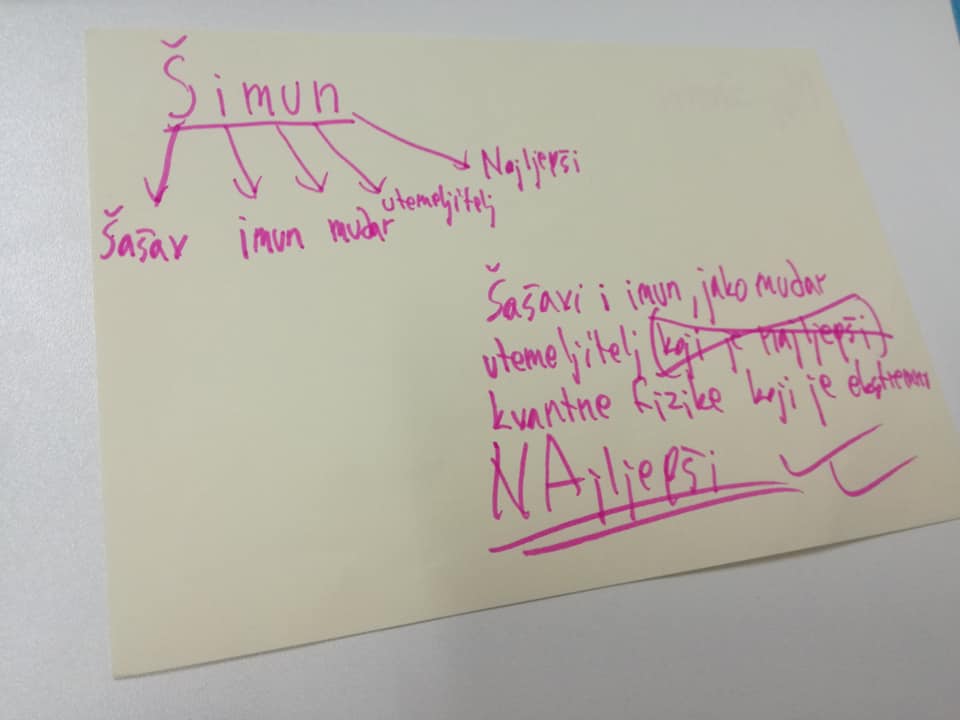 Šimun
Najljepši
Šašav imun mudar utemeljitelj
Šašavi i imun, jako mudar
utemeljitelj (koji je najljepši)
kvantne fizike koji je ekstremno
NAjljepši